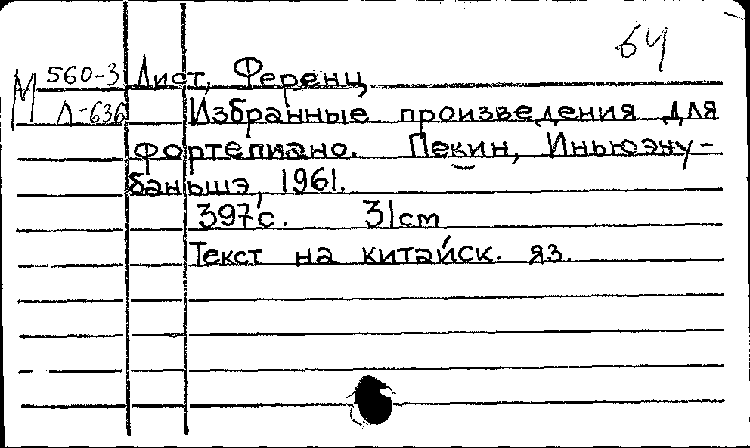 64
М 560-3 Лист, Ференц
Л-636 Избранные произведения для
фортепиано. Пекин, Иньюэчу-
баньшэ, 1961.
397с. 31cm
Текст на китайск. яз.